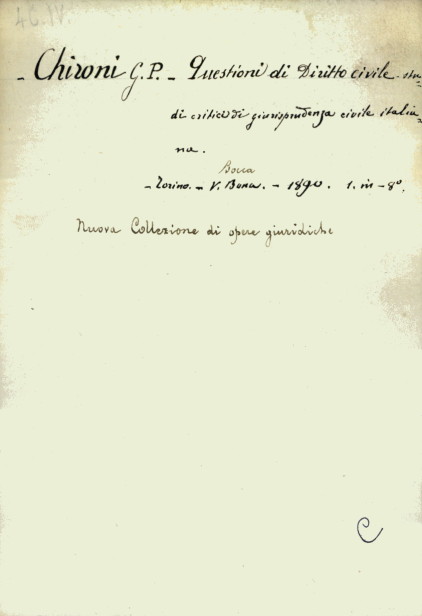 4C.IV.
- Chironi G.P. - Questioni di Diritto civile - stu=
di critici di giurisprudenza civile italia=
na.
Bocca
- Torino. - V. Bona. - 1890. 1. in - 8°.
Nuova Collezione di opere giuridiche
C